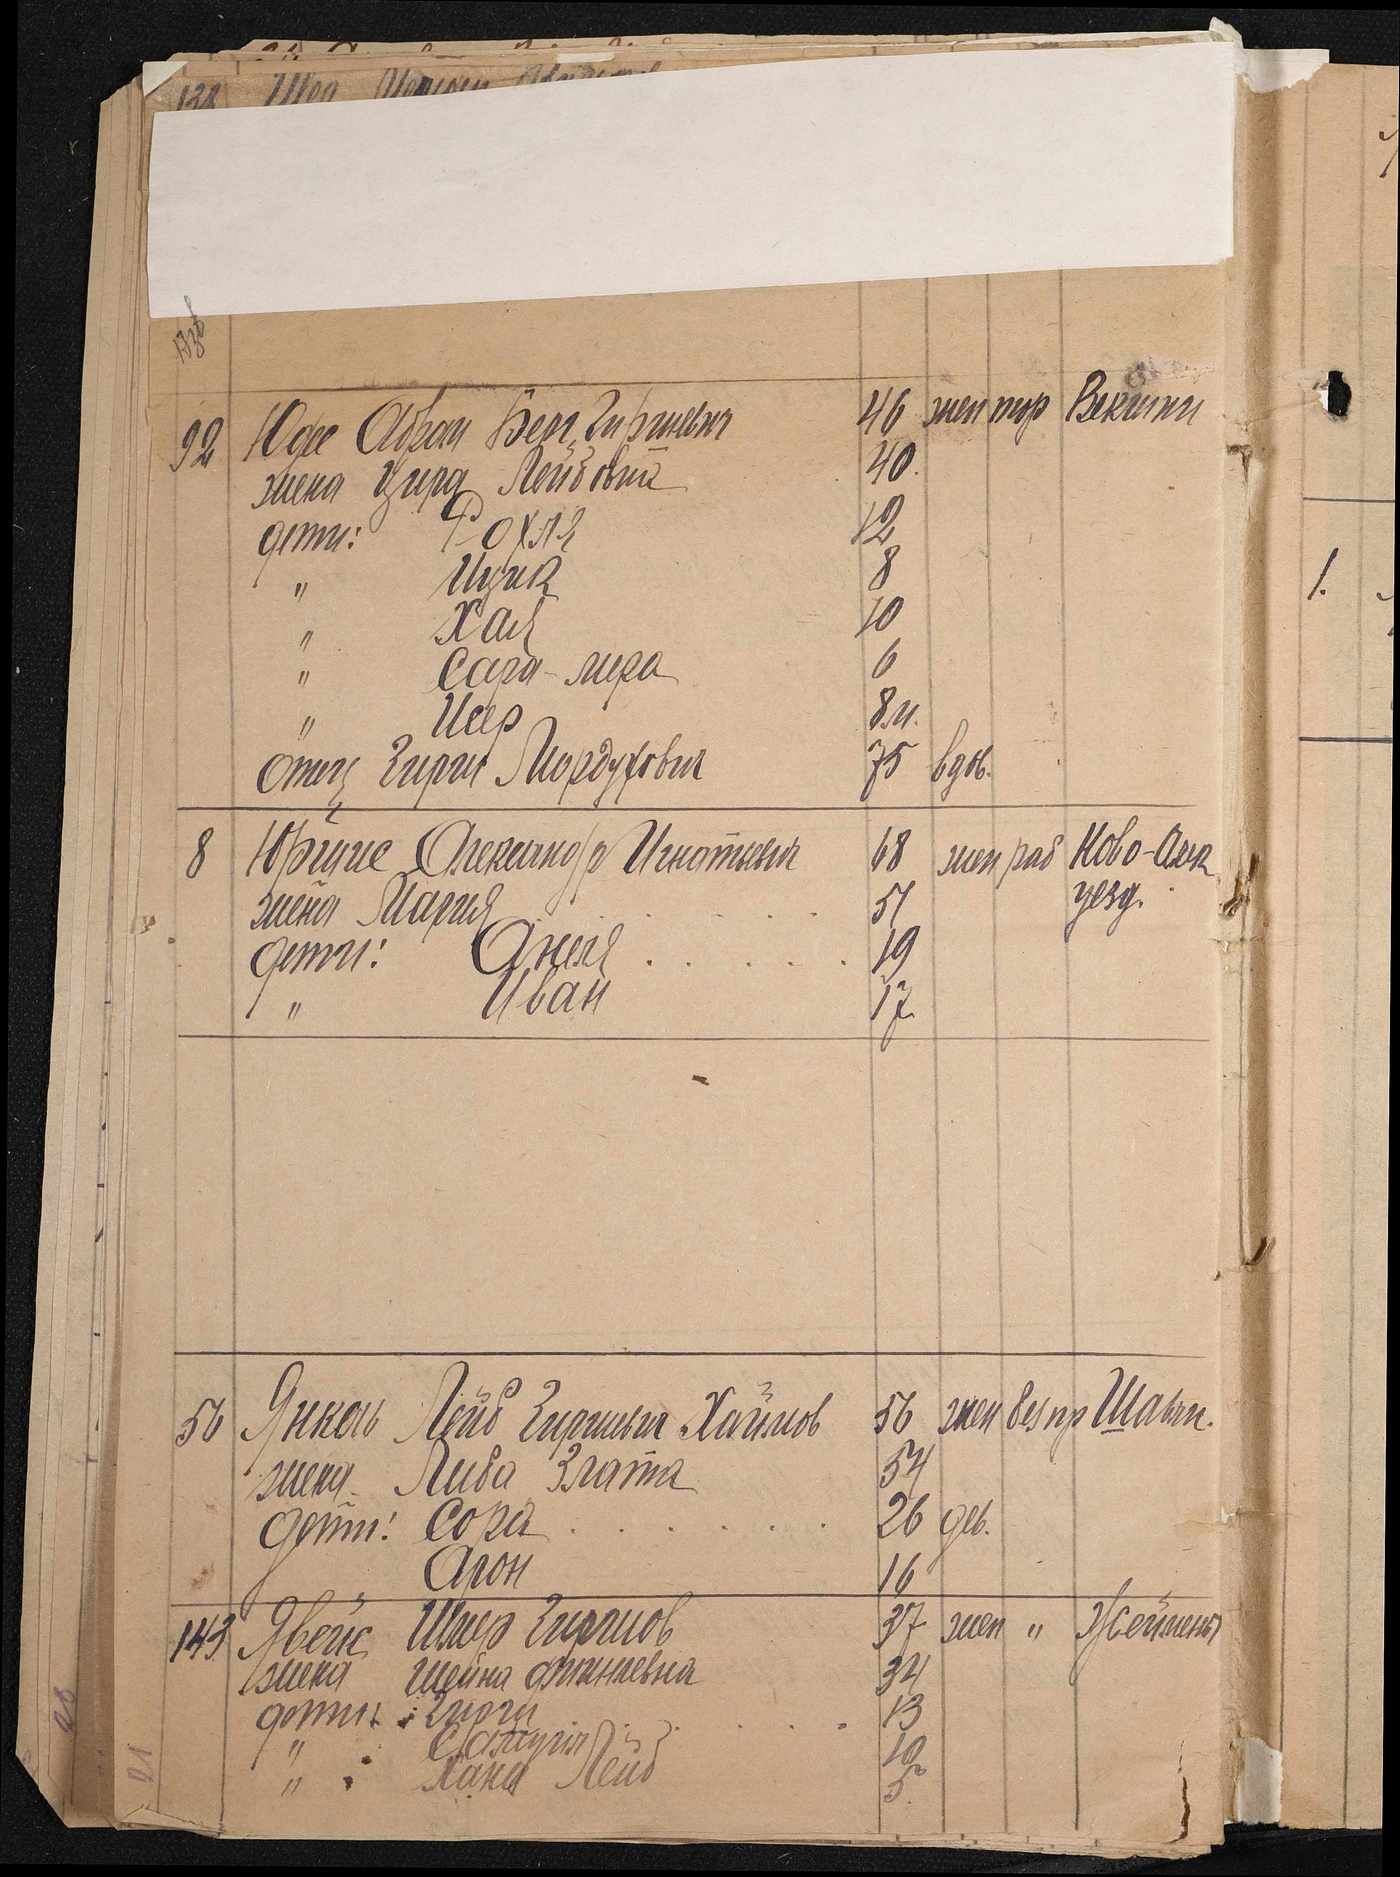 138 Шод
1938
92 Юфе Абрам Бер Гиршевич 46 жен тор Векшни
жена Цира Лейбовна 40.
дети: Рохля 12
" Ицик 8
" Хая 10
" Сара-мера 6
" Исер 8 м.
Отец Гирш Мордухович 75 вдов.
8 Юрцис Александр Игнатьевич 68 жен раб Ново-Алек
жена Мария 51 уезд.
дети: Анеля 19
" Иван 17
56 Янкель Лейб Гиршевич Хаймов 56 жен без пр Шавли.
жена Либа Злата 54
дети: Сора 26 дев.
Арон 16
143 Явейс Шмер Гиршов 37 жен " Жеймены
жена Шейна 34
дети: Гирш 13
" Самуил 10
" Хана Лейб 5.
1.